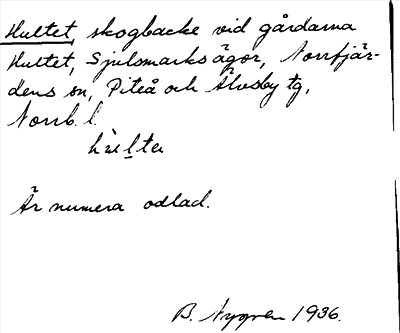 Hultet, skogbacke vid gårdarna
Hultet, Sjulsmarks ägor, Norrfjär-
dens sn, Piteå och Älvsby tg,
Norrb. l.
hùlte
Är numera odlad.
B. Nygren 1936.